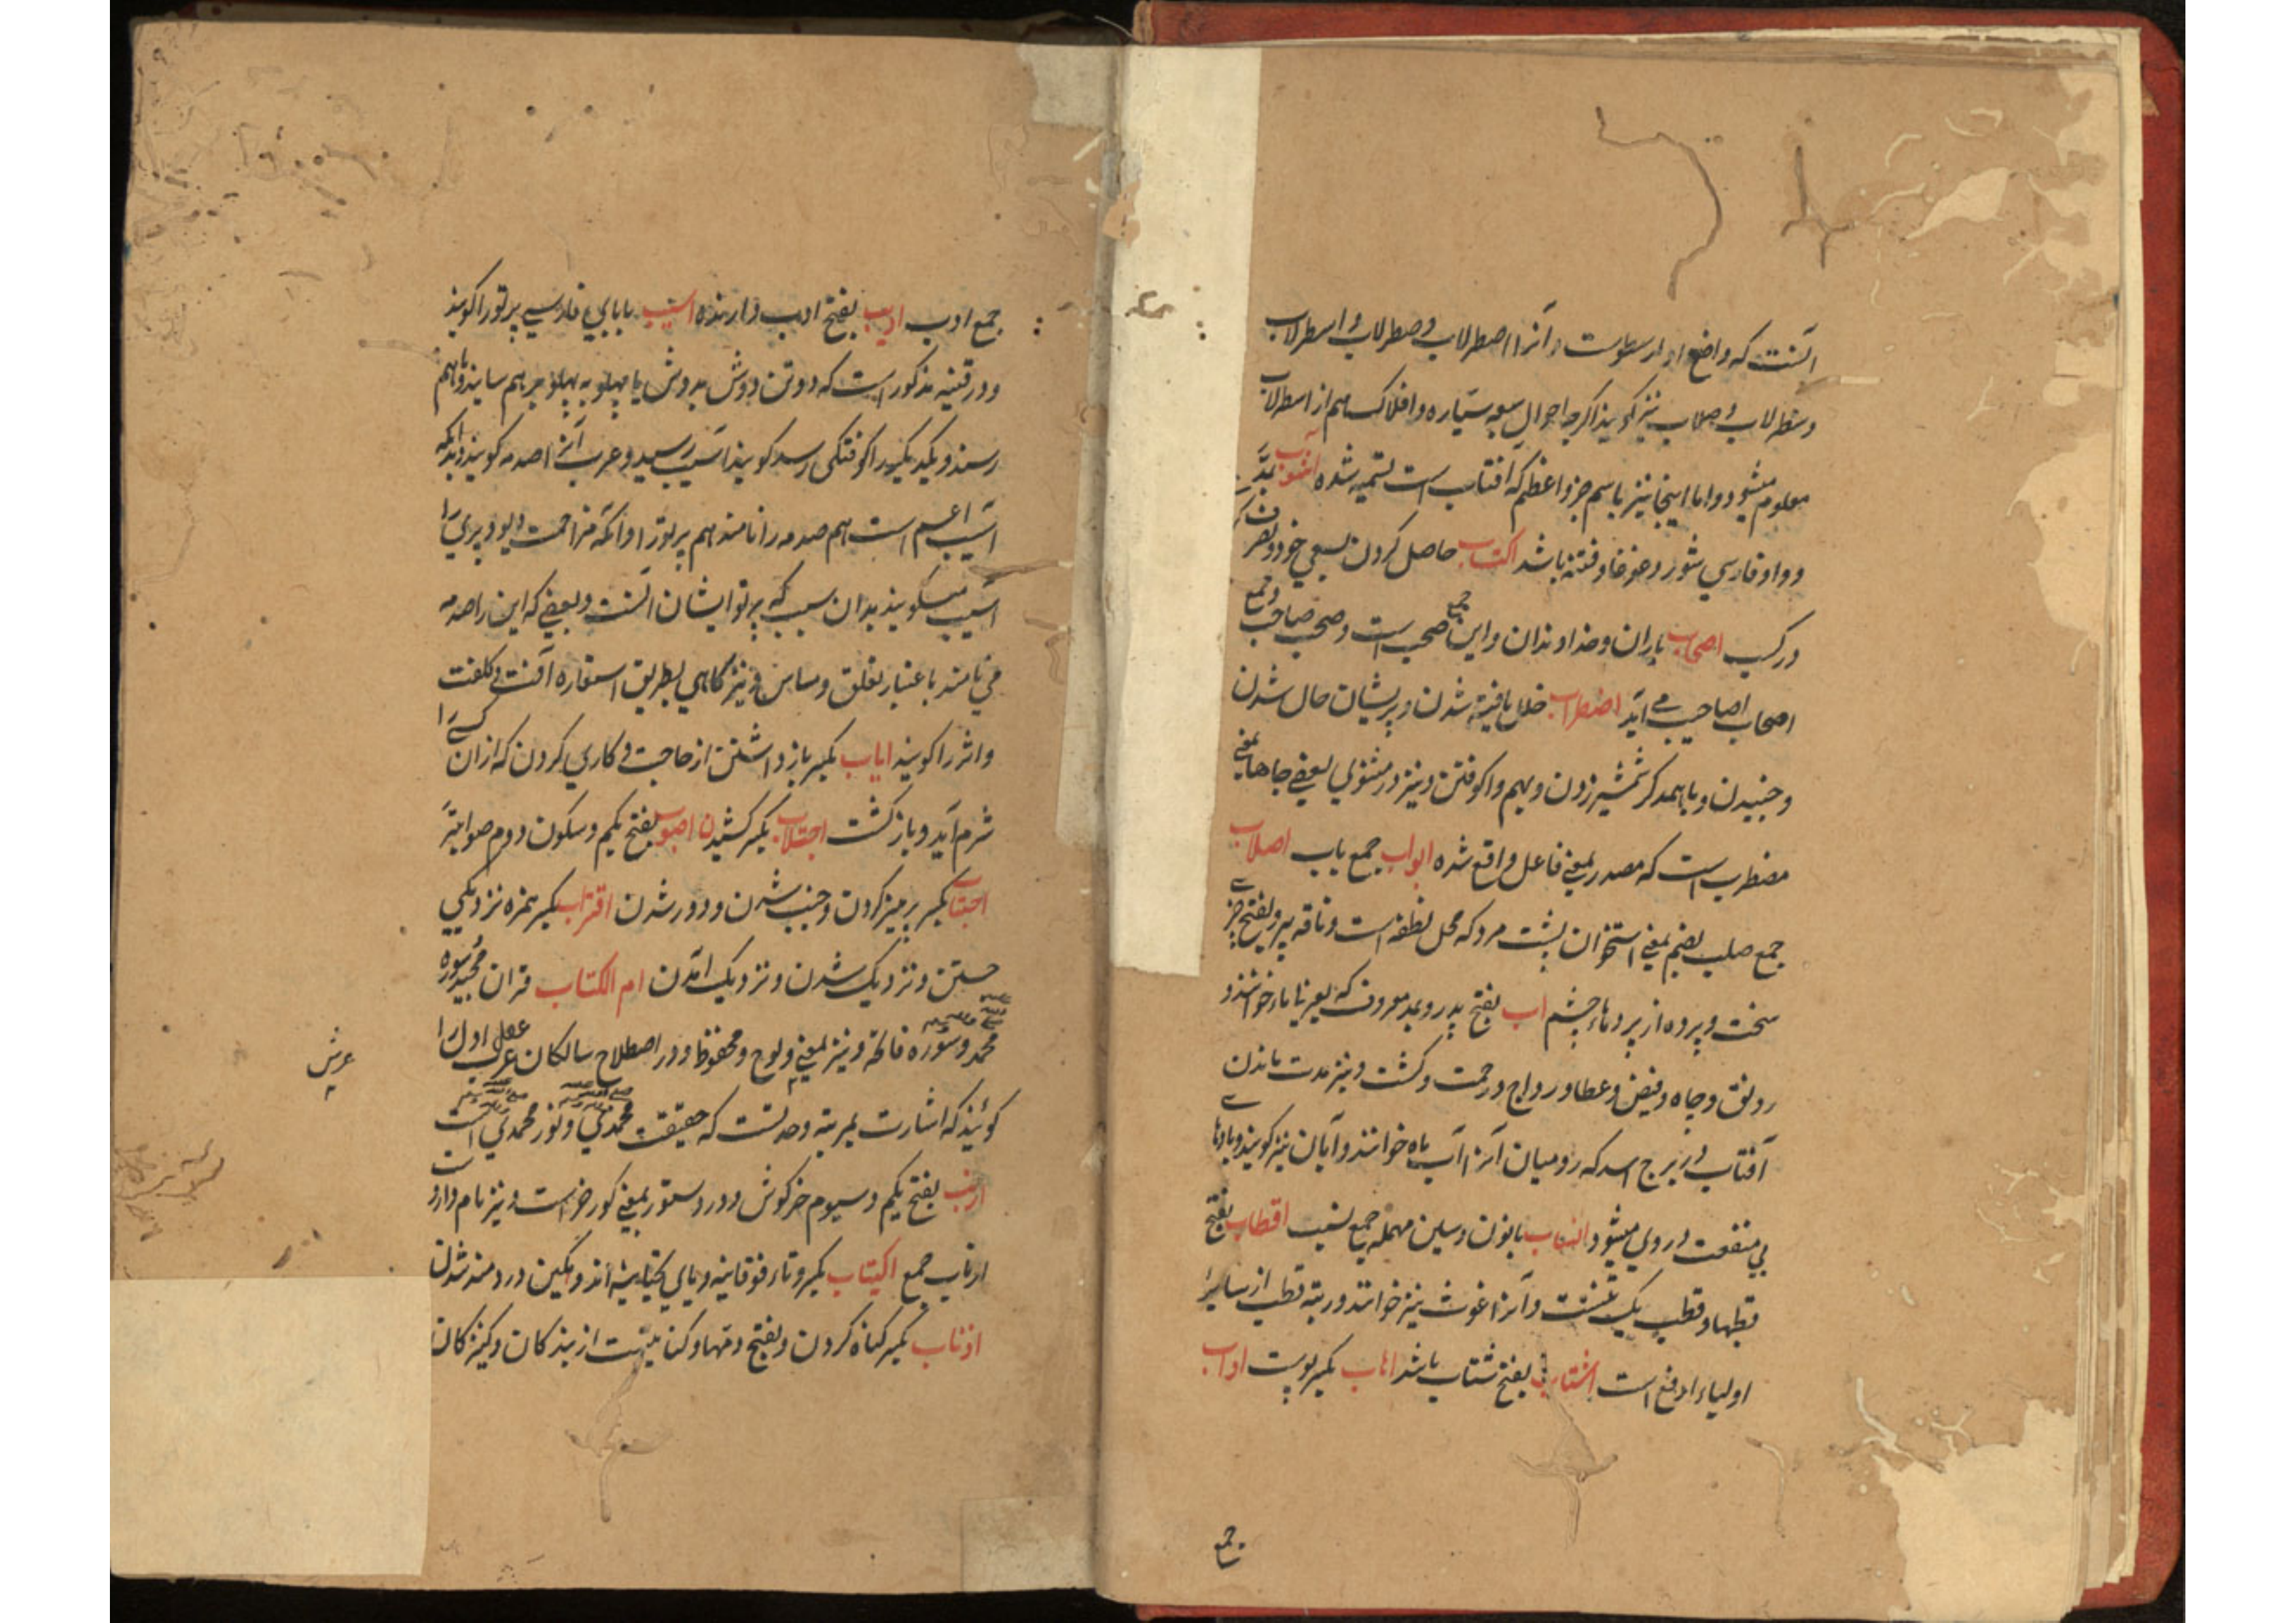 آنست که واضع او ارسطوست و آنرا اصطرلاب و صطرلاب و اسطرلاب
وسطرلاب و صلاب نیز گویند اگرچه احوال سبعه سیاره و افلاک هم از اسطرلاب
معلوم میشود و اما اینجا نیز باسم جزو اعظم که افتاب است تسمیه شده آشوب بمد
و واو فارسی شور و غوغا و فتنه باشد اکتساب حاصل کردن بسعی خود و تصرف
در کسب اصحاب یاران و خداوندان و این جمع صحب است و صحب جمع صاحب و جمع
اصحاب اصاحیب می آید اضطراب خلل یافته شدن و پریشان حال شدن
و جنبیدن و با همدگر شمشیر زدن و بهم واکوفتن و نیز در مثنوی بعضی جاها بمعنی
مضطرب است که مصدر بمعنی فاعل واقع شده ابواب جمع باب اصلاب
جمع صلب بضم بمعنی استخوان پشت مرد که محل نطفه است و ناقه پیر و بفتح چیزی
سخت و پرده از پردهاء چشم اب بفتح پدر و بمد معروف که بعربی ما خوانند و
رونق و جاه و فیض و عطا و رواج و رحمت و کشت و نیز مدت ماندن
آفتاب در برج اسد که رومیان آنرا آب ماه خوانند و آبان نیز گویند و بادهای
بی منفعت در وی میشود انساب بانون و سین مهمله جمع نسب اقطاب بفتح
قطبها و قطب یک تنست و آنرا غوث نیز خوانند و رتبه قطب از سایر
اولیاء ارفع است اشتاب بفتح شتاب باشد اهاب بکسر پوست اداب
جمع
جمع ادب ادیب بفتح ادب دارنده اسیب بابای فارسی پرتو را گویند
و در قنیه مذکور است که دو تن دوش بدوش یا پهلو به پهلو بر هم سایند و باهم
رسند و یکدیگر را کوفتگی رسد گویند آسیب رسید و عرب آنرا صدمه گویند و بدانکه
آسیب اعم است هم صدمه را نامند هم پرتو را و آنکه مزاحمت دیو و پری را
آسیب میگویند بدان سبب که پرتو ایشان آنست و بعضی که این را صدمه
می نامند باعتبار تعلق و مساس و نیز گاهی بطریق استعاره آفت و کلفت
و اثر را گویند ایاب بکسر باز داشتن از حاجت و کاری کردن که ازان کسی را
شرم آید و بازگشت اجتلاب بکسر کشیدن اصوب بفتح یکم و سکون دوم صوابتر
اجتناب بکسر پرهیز کردن و جنب شدن و دور شدن اقتراب بکسر همزه نزدیکی
جستن و نزدیک شدن و نزدیک آمدن ام الکتاب قران مجید سوره
محمد و سوره فاتحه و نیز بمعنی لوح و محفوظ و در اصطلاح سالکان عقل اول را
عرش
گویند که اشارت بمرتبه وحدتست که حقیقت محمدی و نور محمدی است
ارنب بفتح یکم و سیوم خرگوش و در دستور بمعنی گور خر است و نیز نام داروست
ارناب جمع اکتیاب بکسر و تاء فوقانیه و یای تحتانیه اندوهگین و دردمند شدن
اذناب بکسر گناه کردن و بفتح دمها و کنایتست از بندگان و کنیزکان